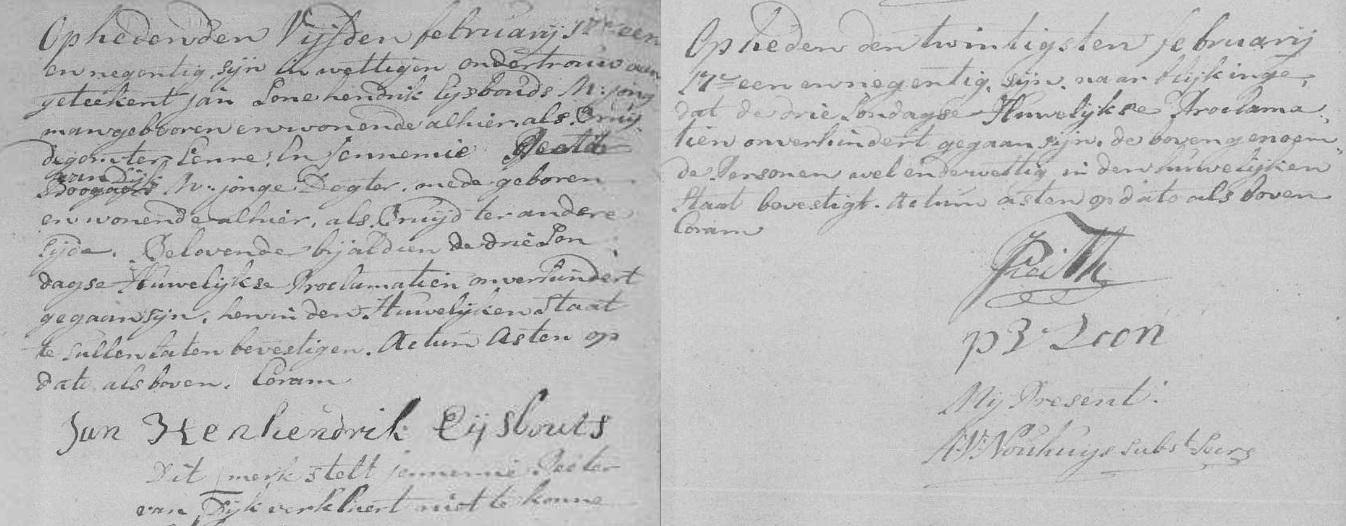 Op heden den Vijfden februarij 17c een
en negentig, sijn in wettigen ondertrouw aan
geteekent Jan Hendrik Eijsbouds N: jong
man gebooren en wonende alhier, als Bruij
degom ter eenre, En Jennemie Peeter
van Dijk
N: jonge Dogter, mede geboren
en wonende alhier, als Bruijd ter andere
sijde. Belovende bij aldien de drie Son
daagse Huwelijkse Proclamatien onverhindert
gegaan sijn, hun in den Huwelijken Staat
te sullen laten bevestigen. Actum Asten op
dato als boven. Coram
Jan Hendrik Eijsbouts
Dit merk stelt Jennemie Peeter
van Dijk verklaert niet te konne
Op heden den twintigsten februarij
17c een en negentig, sijn, naar blijkinge,
dat de drie Sondagse Huwelijkse Proclama
tien onverhindert gegaan sijn, de boven genoem
de Personen wel en dewettig in den huwelijken
Staat bevestigt. Actum Asten op dato als boven
Coram
p
Mij Present:
A. V. Nouhuijs subst. Secrs